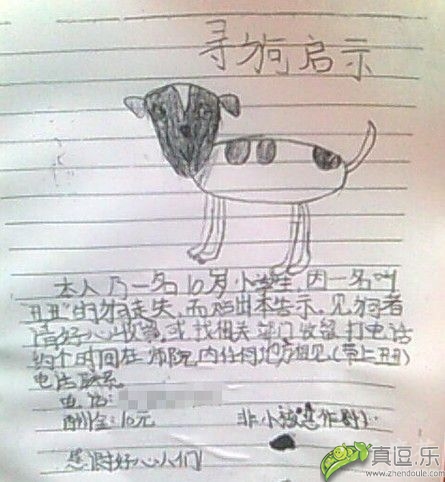 寻狗启示
本人乃一名10岁小学生,因一名叫
丑丑"的狗走失,而贴出本告示。见狗者
请好心收留,或找相关部门收留打电话
约个时间在师院内任何地方相见(带上丑丑)
电话联系。
电话:
酬金:10元 非小孩恶作剧!
感谢好心人们!
真逗.乐
www.zhendoule.com